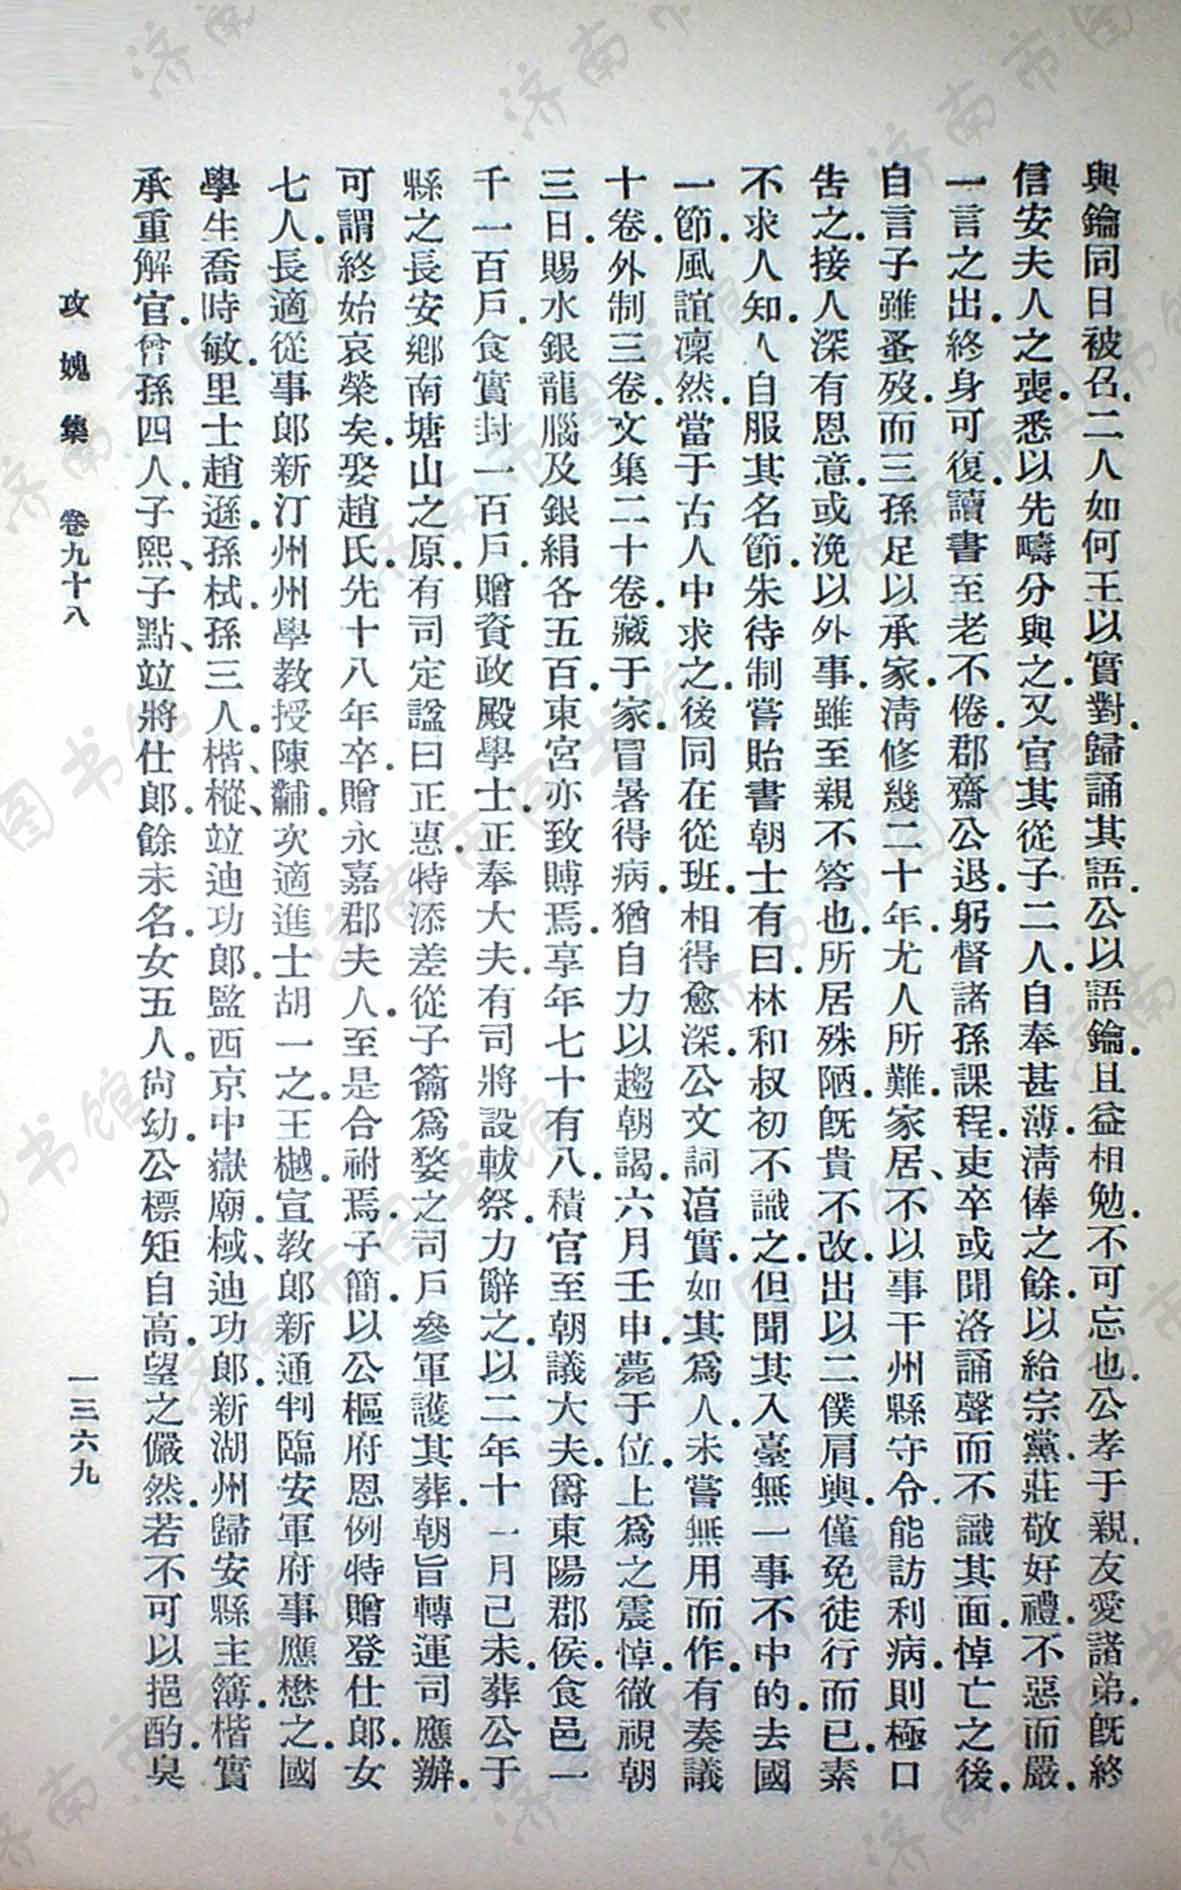 與鑰同日被召.二人如何王以實對.歸誦其語.公以語鑰.且益相勉.不可忘也.公孝于親.友愛諸弟.旣終
信安夫人之喪.悉以先疇分與之.又官其從子二人.自奉甚薄.淸俸之餘.以給宗黨.莊敬好禮.不惡而嚴.
一言之出.終身可復.讀書至老不倦.郡齋公退.躬督諸孫課程.吏卒或聞洛誦聲而不識其面.悼亡之後.
自言子雖蚤歿.而三孫足以承家.淸修幾二十年.尤人所難.家居、不以事干州縣.守令能訪利病.則極口
告之.接人深有恩意.或浼以外事.雖至親不答也.所居殊陋.旣貴不改.出以二僕肩輿.僅免徒行而已.素
不求人知.人自服其名節.朱待制嘗貽書朝士有曰.林和叔初不識之.但聞其入臺無一事不中的.去國
一節.風誼凜然.當于古人中求之.後同在從班.相得愈深.公文詞㳷實.如其爲人.未嘗無用而作.有奏議
十卷.外制三卷.文集二十卷.藏于家.冒暑得病.猶自力以趨朝謁.六月壬申.薨于位.上爲之震悼.徹視朝
三日.賜水銀龍腦及銀絹各五百.東宮亦致賻焉.享年七十有八.積官至朝議大夫.爵東陽郡侯.食邑一
千一百戶.食實封一百戶.贈資政殿學士.正奉大夫.有司將設軷祭.力辭之.以二年十一月己未.葬公于
縣之長安鄉南塘山之原.有司定諡曰正惠.特添差從子籥爲婺之司戶參軍護其葬.朝旨轉運司應辦.
可謂終始哀榮矣.娶趙氏.先十八年卒.贈永嘉郡夫人.至是合祔焉.子簡.以公樞府恩例特贈登仕郎.女
七人.長適從事郎新汀州州學敎授陳黼.次適進士胡一之.王樾.宣敎郎新通判臨安軍府事應懋之.國
學生喬時敏.里士趙遜.孫栻.孫三人.楷、樅、竝迪功郎.監西京中嶽廟.棫、迪功郎.新湖州歸安縣主簿.楷實
承重解官.曾孫四人.子熙、子點、竝將仕郎.餘未名.女五人.尙幼.公標矩自高.望之儼然.若不可以挹酌.臭
攻媿集　卷九十八　一三六九
济南市图书馆